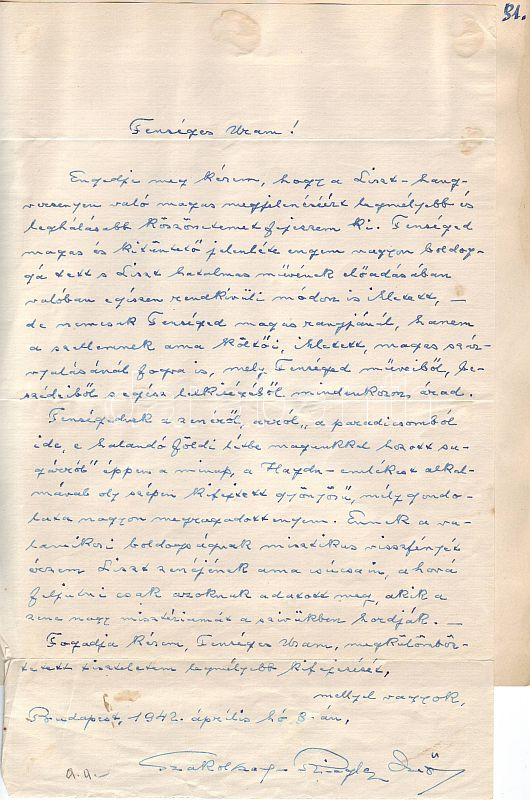 31.
Fenséges Uram!
Engedje meg kérem, hogy a Liszt-hang-
versenyen való magas megjelenéséért legmélyebb és
leghálásabb köszönetemet fejezzem ki. Fenséged
magas és kitüntető jelenléte engem nagyon boldog-
gá tett s Liszt hatalmas művének előadásában
valóban egészen rendkívüli módon is ihletett, —
de nemcsak Fenséged magas rangjánál, hanem
a szellemnek ama költői, ihletett, magas szár-
nyalásánál fogva is, mely Fenséged műveiből, be-
szédeiből s egész lelkiségéből mindenkoron árad.
Fenségednek a zenéről, arról „a paradicsomból
ide, e halandó földi létbe magunkkal hozott su-
gárról" éppen a minap, a Haydn-emlékest alkal-
mával oly szépen kifejtett gyönyörű, mély gondo-
lata nagyon megragadott engem. Ennek a va-
lamikori boldogságnak misztikus visszfényét
érzem Liszt zenéjének ama csúcsain, a hová
feljutni csak azoknak adatott meg, akik a
zene nagy misztériumát a szivükben hordják. —
Fogadja kérem, Fenséges Uram, megkülönböz-
tetett tiszteletem legmélyebb kifejezését,
mellyel vagyok,
Budapest, 1942. április hó 8.-án,
a.a.